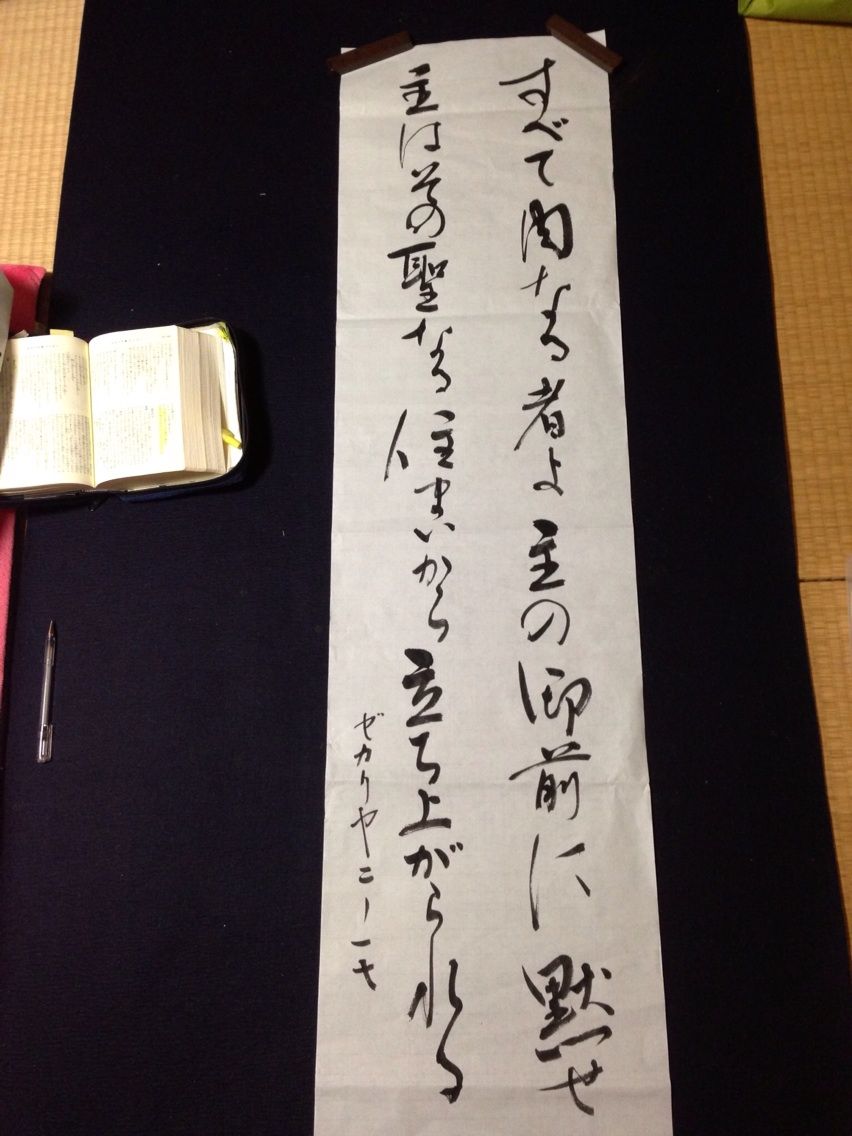 すべて肉なる者よ主の御前に黙せ
主はその聖なる住まいから立ち上がられる
ゼカリヤ二ー一七